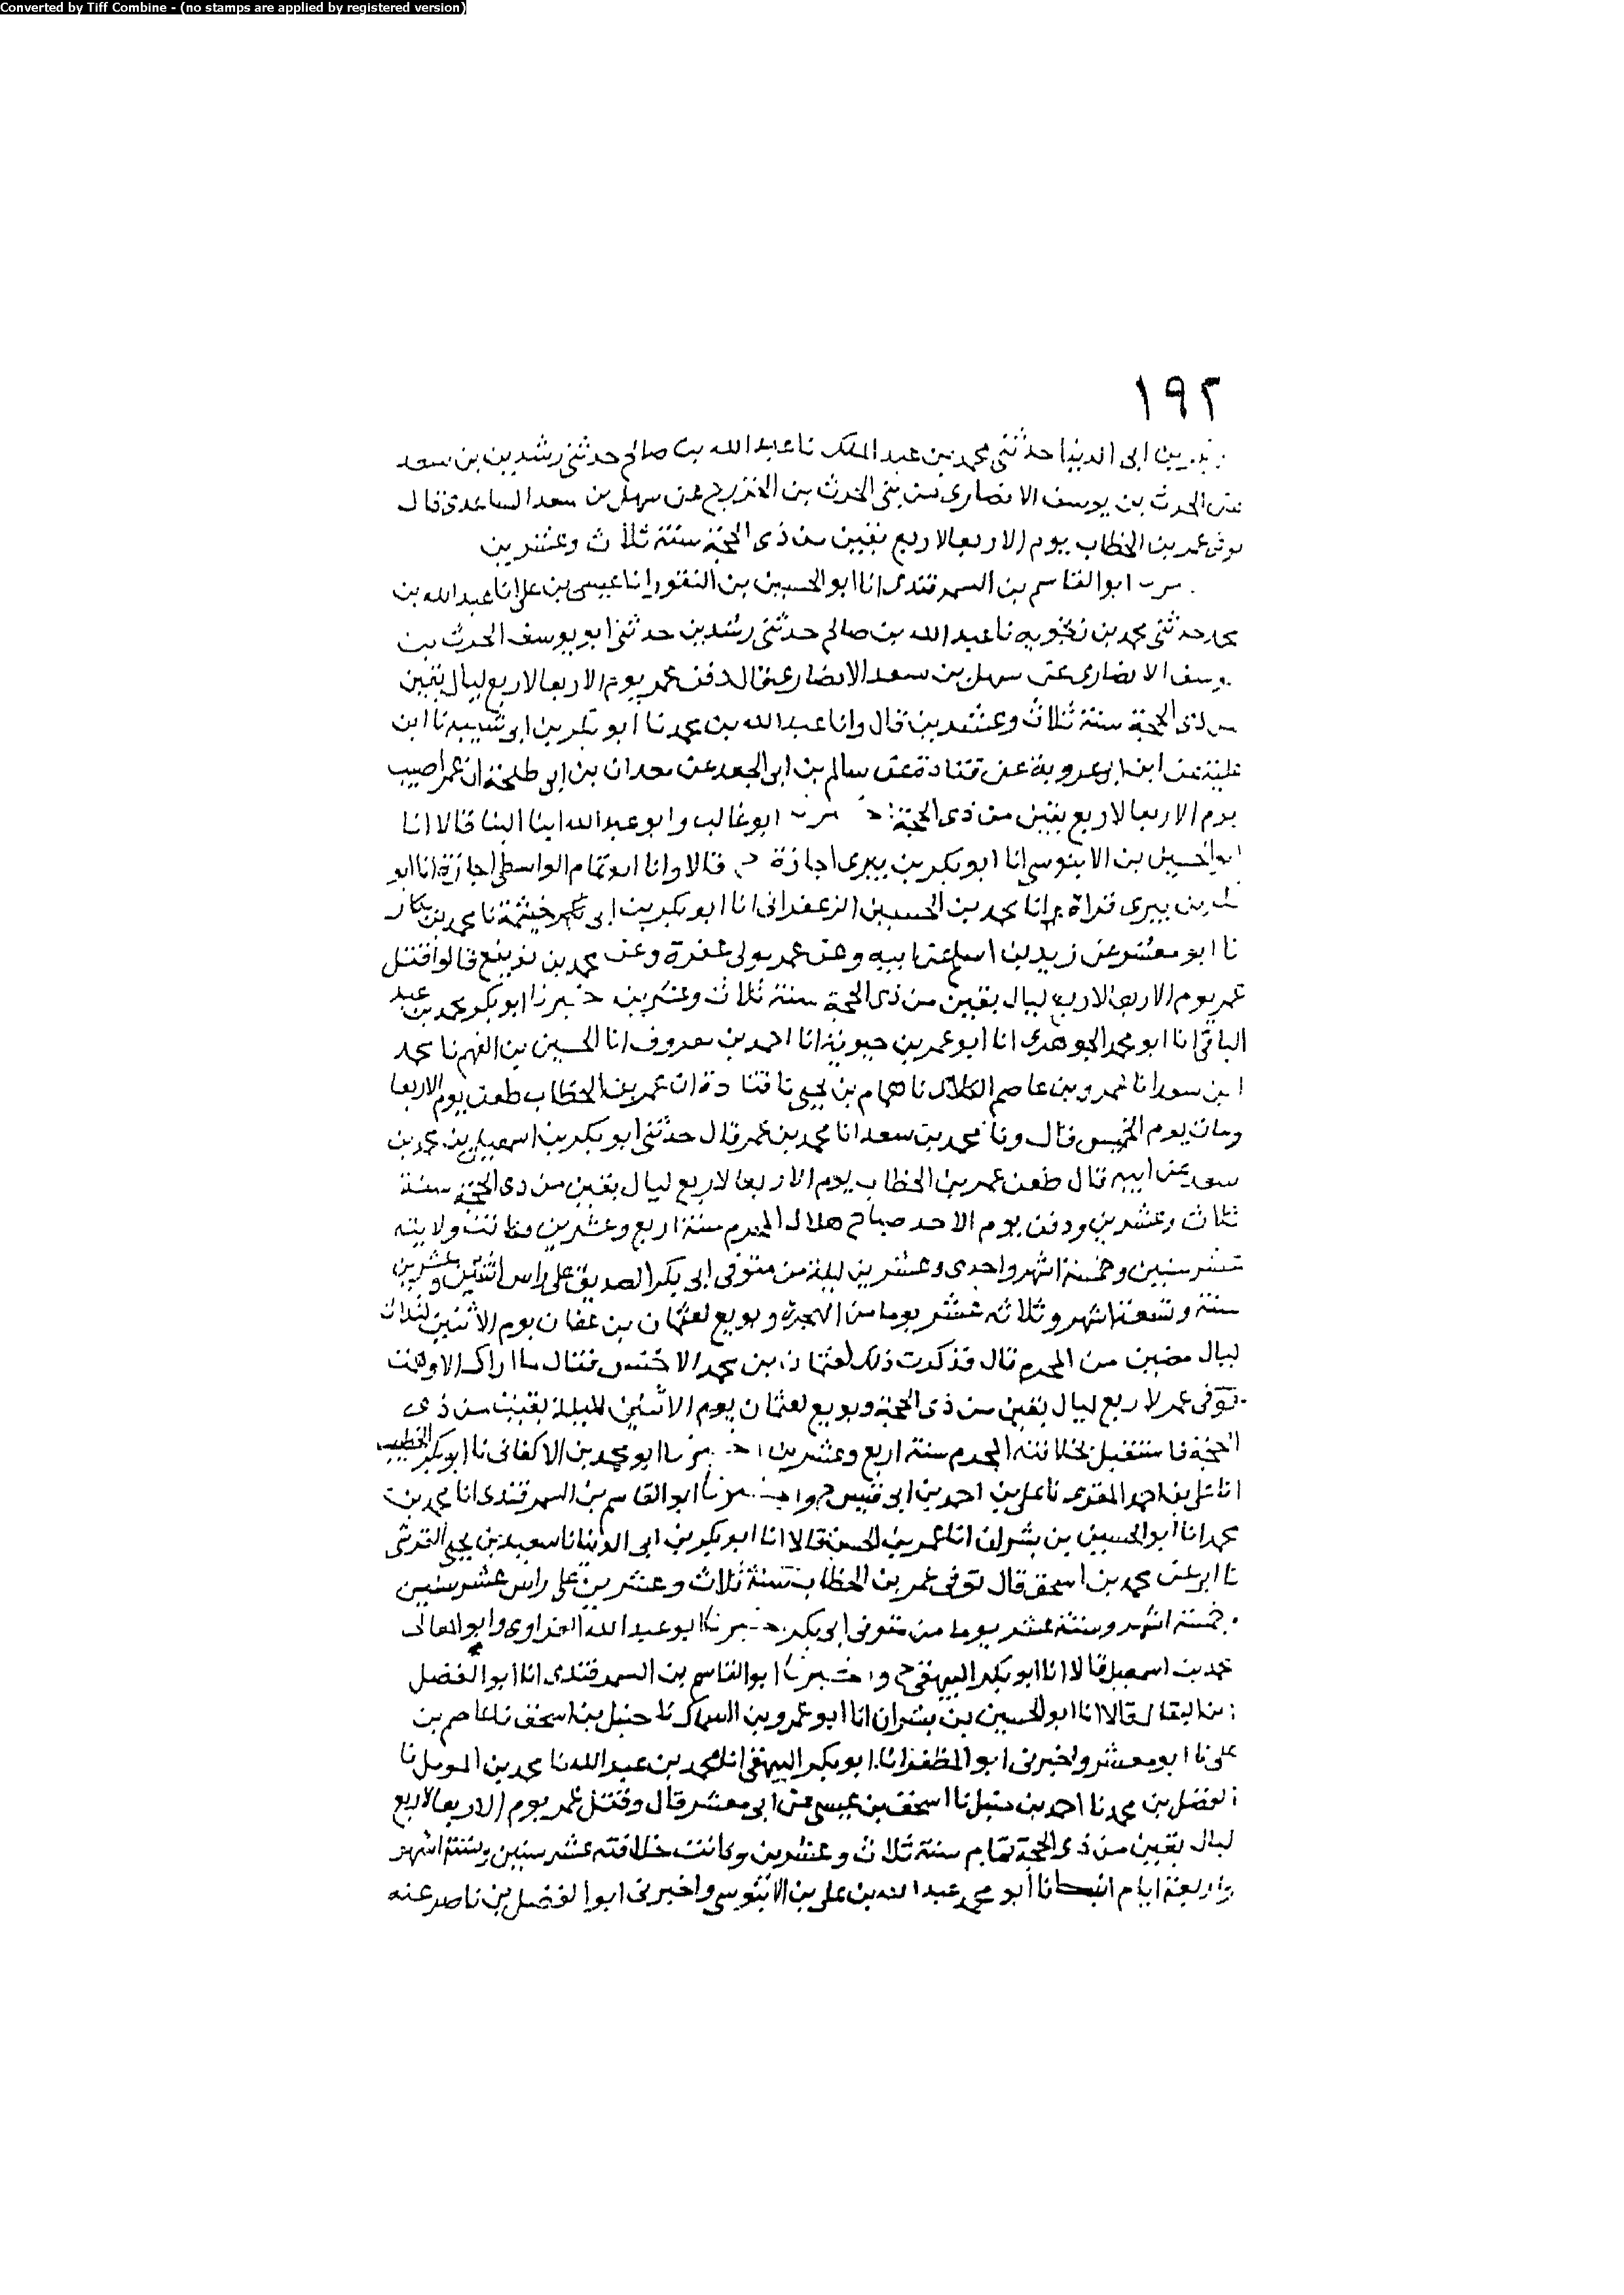 Converted by Tiff Combine - (no stamps are applied by registered version)
١٩٢
بن ابى الدنيا حدثنى محمد بن عبد الملك نا عبد الله بن صالح حدثنى رشدين بن سعد
عن الحرث بن يوسف الانصارى من بنى الحرث بن الخزرج عن سهل بن سعد الساعدى قال
عمر بن الخطاب يوم الاربعا لاربع بقين من ذى الحجة سنة ثلاث وعشرين
ابو القاسم بن السمرقندى انا ابو الحسين بن النقور انا عيسى بن على انا عبد الله بن
محمد حدثنى محمد بن زنجويه نا عبد الله بن صالح حدثنى رشدين حدثنى ابو يوسف الحرث بن
يوسف الانصارى عن سهل بن سعد الانصارى قال دفن عمر يوم الاربعا لاربع ليال بقين
من ذى الحجة سنة ثلاث وعشرين قال وانا عبد الله بن محمد نا ابو بكر بن ابى شيبة نا ابن
علية عن ابن ابى عروبة عن قتادة عن سالم بن ابى الجعد عن معدان بن ابى طلحة ان عمر اصيب
يوم الاربعا لاربع بقين من ذى الحجة ابو غالب وابو عبد الله ابنا البنا قالا انا
ابو الحسين بن الابنوسى انا ابو بكر بن بيرى اجازة ح قالا وانا ابو تمام الواسطى اجازة انا ابو
بكر بن بيرى قراة انا محمد بن الحسين الزعفرانى انا ابو بكر بن ابى خيثمة نا محمد بن بكار
نا ابو معشر عن زيد بن اسلم عن ابيه وعن عمر مولى غفرة وعن محمد بن بزيع قالوا قتل
عمر يوم الاربعا لاربع ليال بقين من ذى الحجة سنة ثلاث وعشرين خبرنا ابو بكر محمد بن عبد
الباقى انا ابو محمد الجوهرى انا ابو عمر بن حيوية انا احمد بن معروف انا الحسين بن الفهم نا محمد
ابن سعد انا عمرو بن عاصم الكلابى نا همام بن يحيى نا قتادة ان عمر بن الخطاب طعن يوم الاربعا
ومات يوم الخميس قال ونا محمد بن سعد انا محمد بن عمر قال حدثنى ابو بكر بن اسمعيل بن محمد بن
سعد عن ابيه قال طعن عمر بن الخطاب يوم الاربعا لاربع ليال بقين من ذى الحجة سنة
ثلاث وعشرين ودفن يوم الاحد صباح هلال المحرم سنة اربع وعشرين وكانت ولايته
عشر سنين وخمسة اشهر واحدى وعشرين ليلة من متوفى ابى بكر الصديق على راس اثنتين وعشرين
سنة وتسعة اشهر وثلاثه عشر يوما من الهجرة وبويع لعثمان بن عفان يوم الاثنين لثلاث
ليال مضين من المحرم قال فذكرت ذلك لعثمان بن محمد الاخنس فقال ما اراك الا وهلت
توفى عمر لاربع ليال بقين من ذى الحجة وبويع لعثمان يوم الاثنين لليلة بقيت من ذى
الحجة فاستقبل بخلافته المحرم سنة اربع وعشرين خبرنا ابو محمد بن الاكفانى نا ابو بكر الخطيب
انا على بن احمد المقرى نا على بن احمد بن ابى قيس ح واخبرنا ابو القاسم بن السمرقندى انا محمد بن
محمد انا ابو الحسين بن بشران انا عمر بن الحسن قالا انا ابو بكر بن ابى الدنيا نا سعيد بن يحيى القرشى
نا ابى عن محمد بن اسحق قال توفى عمر بن الخطاب سنة ثلاث وعشرين على راس عشر سنين
وخمسة اشهر وستة عشر يوما من متوفى ابى بكر خبرنا ابو عبد الله الفراوى وابو المعالى
محمد بن اسمعيل قالا انا ابو بكر البيهقى ح واخبرنا ابو القاسم بن السمرقندى انا ابو الفضل
بن البقال قالا انا ابو الحسين بن بشران انا ابو عمرو بن السماك نا حنبل بن اسحق نا عاصم بن
على نا ابو معشر واخبرنى ابو المظفر انا ابو بكر البيهقى انا محمد بن عبد الله نا محمد بن المومل نا
الفضل بن محمد نا احمد بن حنبل نا اسحق بن عيسى عن ابى معشر قال وقتل عمر يوم الاربعا لاربع
ليال بقين من ذى الحجة تمام سنة ثلاث وعشرين وكانت خلافته عشر سنين وستة اشهر
واربعة ايام انبانا ابو محمد عبد الله بن على بن الابنوسى واخبرنى ابو الفضل بن ناصر عنه